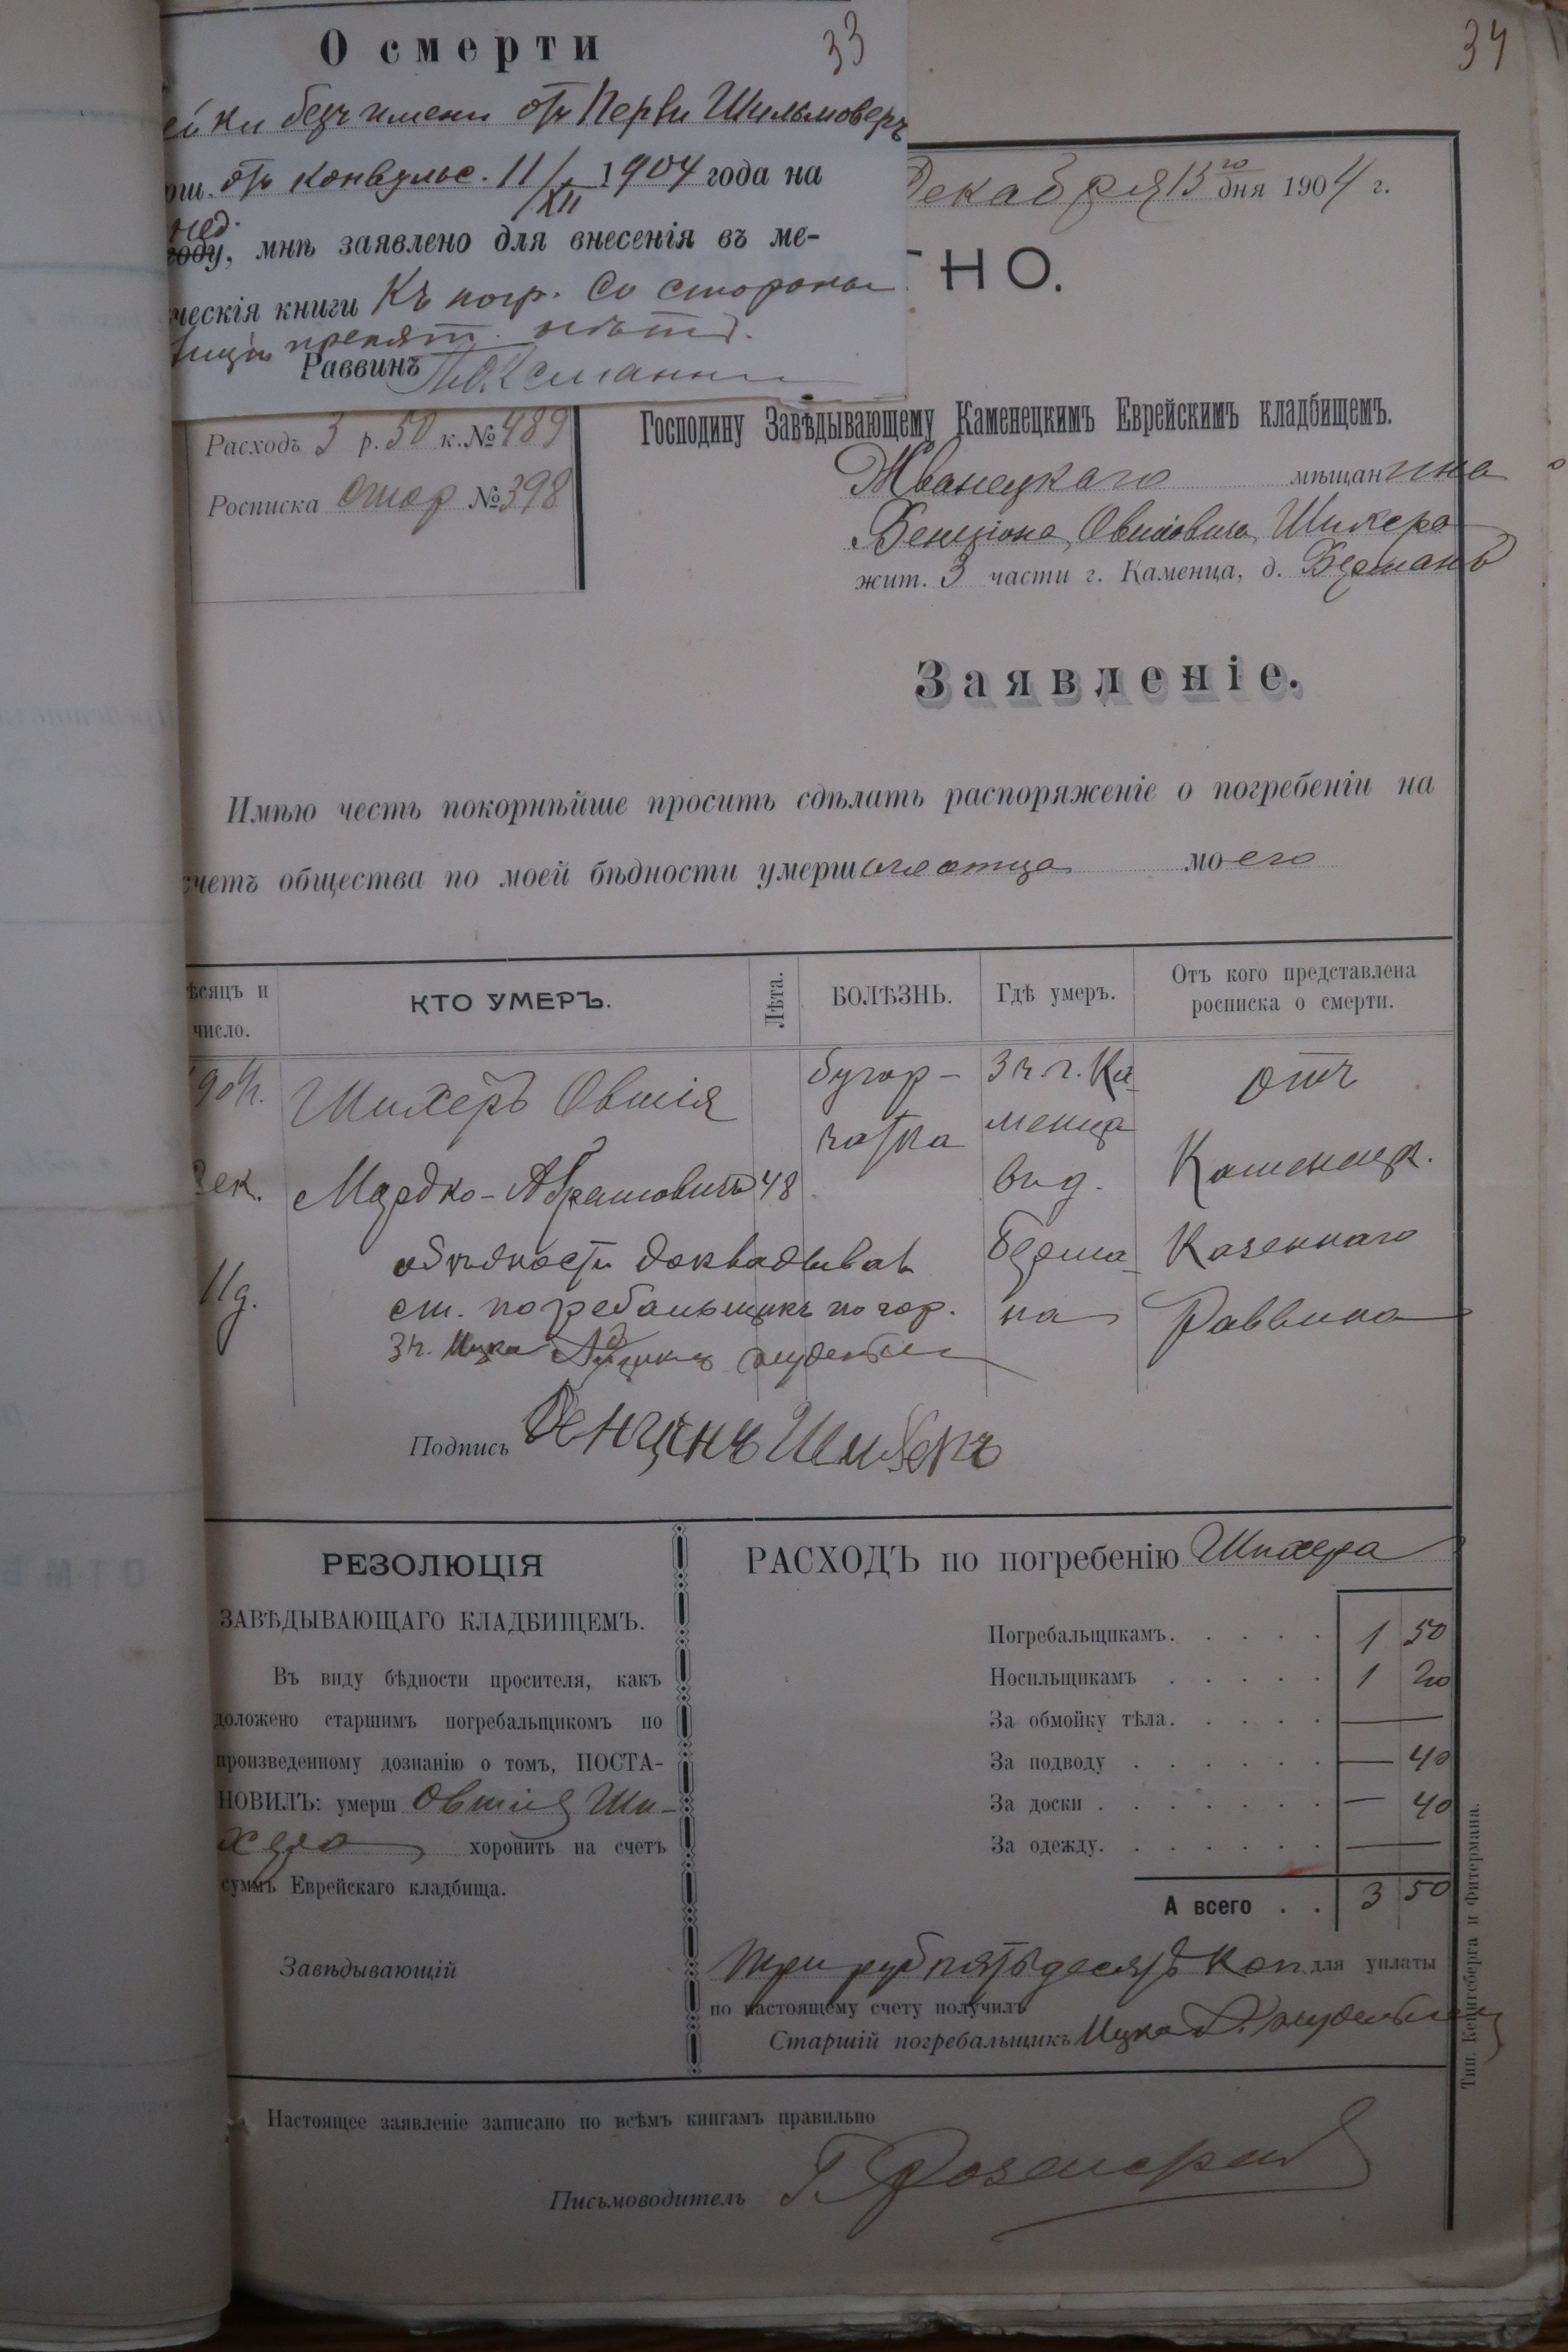 О смерти
33
34
ейки безъ имени отъ Перви Шильмоверъ
рш. отъ конвульс. 11/XII 1904 года на
нед.
году, мнѣ заявлено для внесенія въ ме-
ческія книги Къ погр. Со стороны
препят. нѣтъ.
Раввинъ
Декабря 13 го дня 1904 г.
ТНО.
Расходъ 3 р. 50 к. № 489
Росписка отор № 398
Господину Завѣдывающему Каменецкимъ Еврейскимъ кладбищемъ.
Жванецкаго мѣщанина
Бенціона Овшіовича Шихера
жит. 3 части г. Каменца, д. Бермана
Заявленіе.
Имѣю честь покорнѣйше просить сдѣлать распоряженіе о погребеніи на
счетъ общества по моей бѣдности умершаго отца моего
ѣсяцъ и число.
КТО УМЕРЪ.
Лѣта.
БОЛѢЗНЬ.
Гдѣ умеръ.
Отъ кого представлена росписка о смерти.
904г.
дек.
11 д.
Шихеръ Овшія
Мардко-Абрамовичъ
48
бугор-
чатка
3 ч. г. Ка-
менца
въ д.
Берма-
на
отъ
Каменецк.
Казеннаго
Раввина
о бѣдности докладывалъ
ст. погребальщикъ по гор.
3 ч. Ицка
Подпись Бенцiнъ Шихеръ
РЕЗОЛЮЦІЯ
ЗАВѢДЫВАЮЩАГО КЛАДБИЩЕМЪ.
Въ виду бѣдности просителя, какъ
доложено старшимъ погребальщикомъ по
произведенному дознанію о томъ, ПОСТА-
НОВИЛЪ: умерш Овшія Ши-
хера хоронить на счетъ
суммъ Еврейскаго кладбища.
Завѣдывающій
РАСХОДЪ по погребенію Шихера
Погребальщикамъ. . . . . 1 50
Носильщикамъ . . . . . 1 20
За обмойку тѣла. . . . . —
За подводу . . . . . . — 40
За доски . . . . . . . — 40
За одежду. . . . . . . —
А всего . . 3 50
Три руб пятьдесятъ коп для уплаты
по настоящему счету получилъ
Старшій погребальщикъ Ицко
Настоящее заявленіе записано по всѣмъ книгамъ правильно
Письмоводитель
Тип. Кенигсберга и Фитермана.